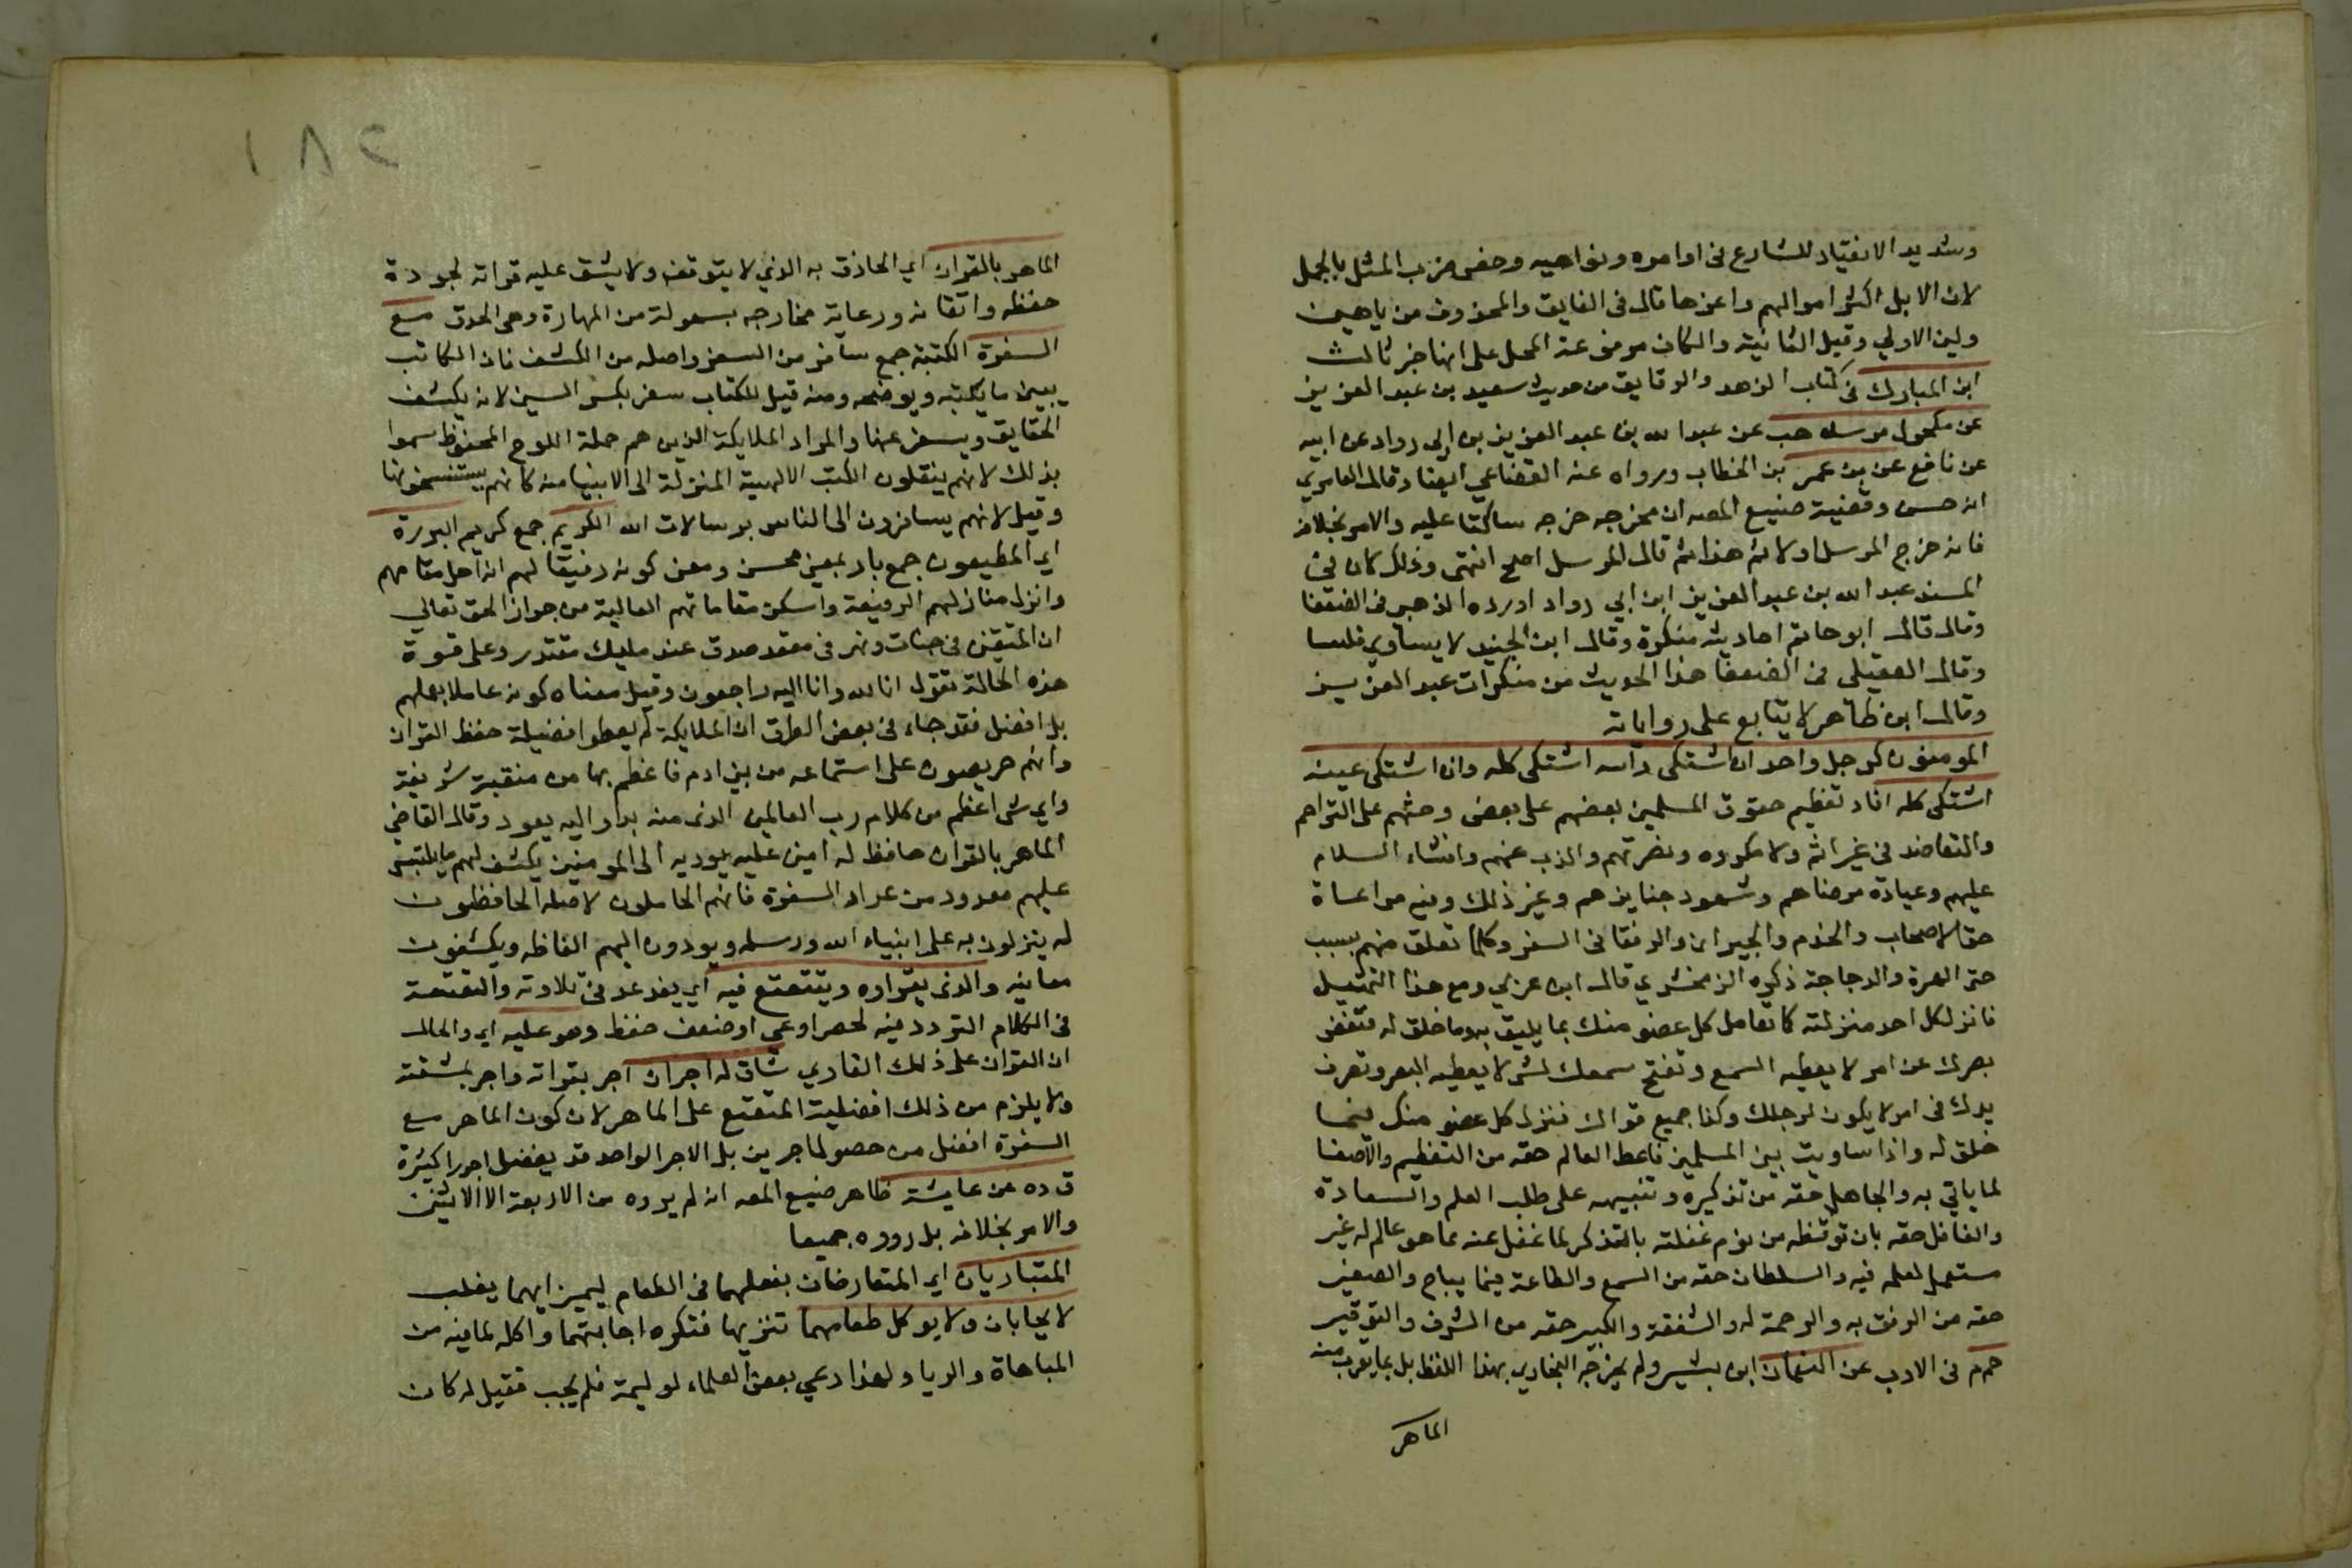 وشديد الانقياد للشارع فى اوامره ونواهيه وخص ضرب المثل بالجمل
لان الابل اكثر اموالهم واعزها قال فى الفايق والمحذوف من ياهين
ولين الاولي وقيل الثانية والكاف مرفوعة المحل على انها خبر ثالث
ابن المبارك فى كتاب الزهد والرقايق من حديث سعيد بن عبد العزيز
عن مكحول مرسلا هب عن عبد الله بن عبد العزيز بن ابي رواد عن ابيه
عن نافع عن بن عمر بن الخطاب ورواه عنه القضاعي ايضا وقال العامري
انه حسن وقضية صنيع المص ان مخرجه خرجه ساكتا عليه والامر بخلافه
فانه خرج المرسل اولا ثم هذا ثم قال المرسل اصح انتهى وذلك لان في
المسند عبد الله بن عبد العزيز ابن ابي رواد اورده الذهبى فى الضعفا
وقال قال ابو حاتم احاديثه منكرة وقال ابن الجنيد لا يساوي فلسا
وقال العقيلى فى الضعفا هذا الحديث من منكرات عبد العزيز
وقال ابن طاهر لا يتابع على رواياته
المومنون كرجل واحد ان اشتكى رآسه اشتكى كله وان اشتكى عينه
اشتكى كله افاد تعظيم حقوق المسلمين بعضهم على بعض وحثهم على التراحم
والتعاضد فى غير اثم ولا مكروه ونصرتهم والذب عنهم وافشاء السلام
عليهم وعيادة مرضاهم وشهود جنايزهم وغير ذلك وفيه مراعاة
حق الاصحاب والخدم والجيران والرفقا فى السفر وكلما تعلق منهم بسبب
حتى الهرة والدجاجة ذكره الزمخشري قال ابن عربي ومع هذا التمثيل
فانزل كل احد منزلته كما تعامل كل عضو منك بما يليق به وما خلق له فتغض
بصرك عن امر لا يعطيه السمع وتفتح سمعك لشى لا يعطيه البصر وتصرف
يدك فى امر لا يكون لرجلك وكذا جميع قواك فنزل كل عضو منك فيما
خلق له واذا ساويت بين المسلمين فاعط العالم حقه من التعظيم والاصغا
لما ياتي به والجاهل حقه من تذكيره وتنبيهه على طلب العلم والسعادة
والغافل حقه بان توقظه من نوم غفلته بالتذكر لما غفل عنه مما هو عالم له غير
مستعمل لعلمه فيه والسلطان حقه من السمع والطاعة فيما يباح والصغير
حقه من الرفق به والرحمة له والشفقة والكبير حقه من الشرف والتوقير
حم م فى الادب عن النعمان ابن بشير ولم يخرجه البخاري بهذا اللفظ بل بما يقرب منه
الماهر
١٨٢
الماهر بالقران اي الحاذق به الذي لا يتوقف ولا يشق عليه قراته لجودة
حفظه واتقانه ورعاية مخارجه بسهولة من المهارة وهى الحذق مع
السفرة الكتبة جمع سافر من السفر واصله من الكشف فان الكاتب
يبين ما يكتبه ويوضحه ومنه قيل للكتاب سفر بكسر السين لانه يكشف
الحقايق ويسفر عنها والمراد الملايكة الذين هم حملة اللوح المحفوظ سموا
بذلك لانهم ينقلون الكتب الالهية المنزلة الى الانبيا منه كانهم يستنسخونها
وقيل لانهم يسافرون الى الناس برسالات الله الكريم جمع كريم البررة
اي المطيعون جمع بار بمعنى محسن ومعنى كونه رفيقا لهم انه احل مقامهم
وانزل منازلهم الرفيعة واسكن مقاماتهم العالية من جوار الحق تعالي
ان المتقين فى جنات ونهر فى مقعد صدق عند مليك مقتدر وعلى قسوة
هذه الحالة نقول انا لله وانا اليه راجعون وقيل معناه كونه عاملا بعملهم
بل افضل فقد جاء فى بعض الطرق ان الملايكة لم يعطوا فضيلة حفظ القران
وانهم حريصون على استماعه من بنى ادم فاعظم بها من منقبة شريفة
واي شى اعظم من كلام رب العالمين الذى منه بدا واليه يعود وقال القاضي
الماهر بالقران حافظ له امين عليه يوديه الى المومنين يكشف لهم ما يلتبس
عليهم معدود من عداد السفرة فانهم الحاملون لاصله الحافظون
له ينزلون به على انبياء الله ورسله ويودون اليهم الفاظه ويكشفون
معانيه والذى يقراوه ويتتعتع فيه اي يتردد فى تلاوته والتعتعة
فى الكلام التردد فيه لحصر اوعي او ضعف حفظ وهو عليه اي والحال
ان القران على ذلك القاري شاق له اجران اجر بقراته واجر بمشقته
ولا يلزم من ذلك افضلية المتتعتع على الماهر لان كون الماهر مع
السفرة افضل من حصول اجرين بل الاجر الواحد قد يفضل اجورا كثيرة
ق ده عن عايشة ظاهر صنيع المص انه لم يروه من الاربعة الا الاثنين
والامر بخلافه بل رووه جميعا
المتباريان اي المتعارضان بفعلهما فى الطعام ليميز ايهما يغلب
لا يجابان ولا يوكل طعامهما تنزيها فتكره اجابتهما واكله لما فيه من
المباهاة والريا ولهذا دعي بعض العلماء لوليمة فلم يجب فقيل له كان